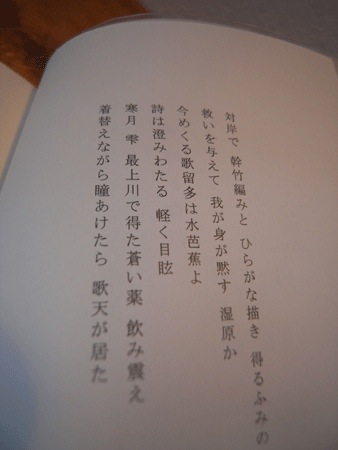 対岸で 幹竹編みと ひらがな描き 得るふみの
救いを与えて 我が身が黙す 湿原か
今めくる歌留多は水芭蕉よ
詩は澄みわたる 軽く目眩
寒月 雫 最上川で得た蒼い薬 飲み震え
着替えながら瞳あけたら 歌天が居た